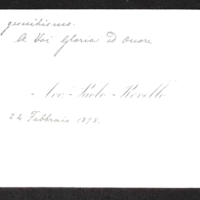 gesuitismo.
A Voi Gloria ed Onore
Avv. Paolo Rovello
22 Febbraio 1898.